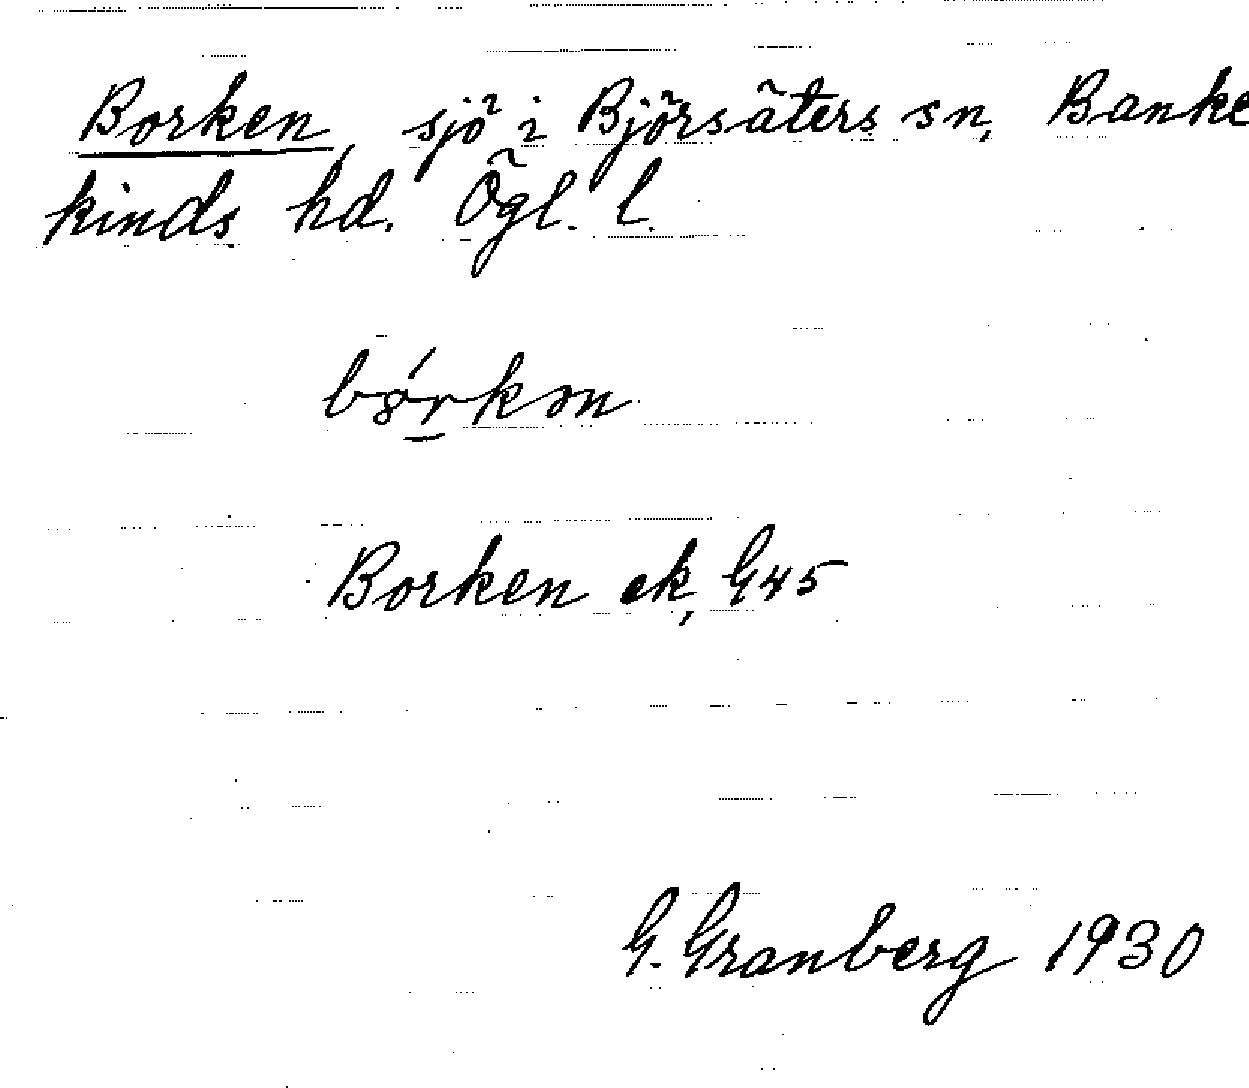 Borken, sjö i Björsäters sn, Banke
kinds hd. Ögl. l.
Borken ek, G45
G. Granberg 1930